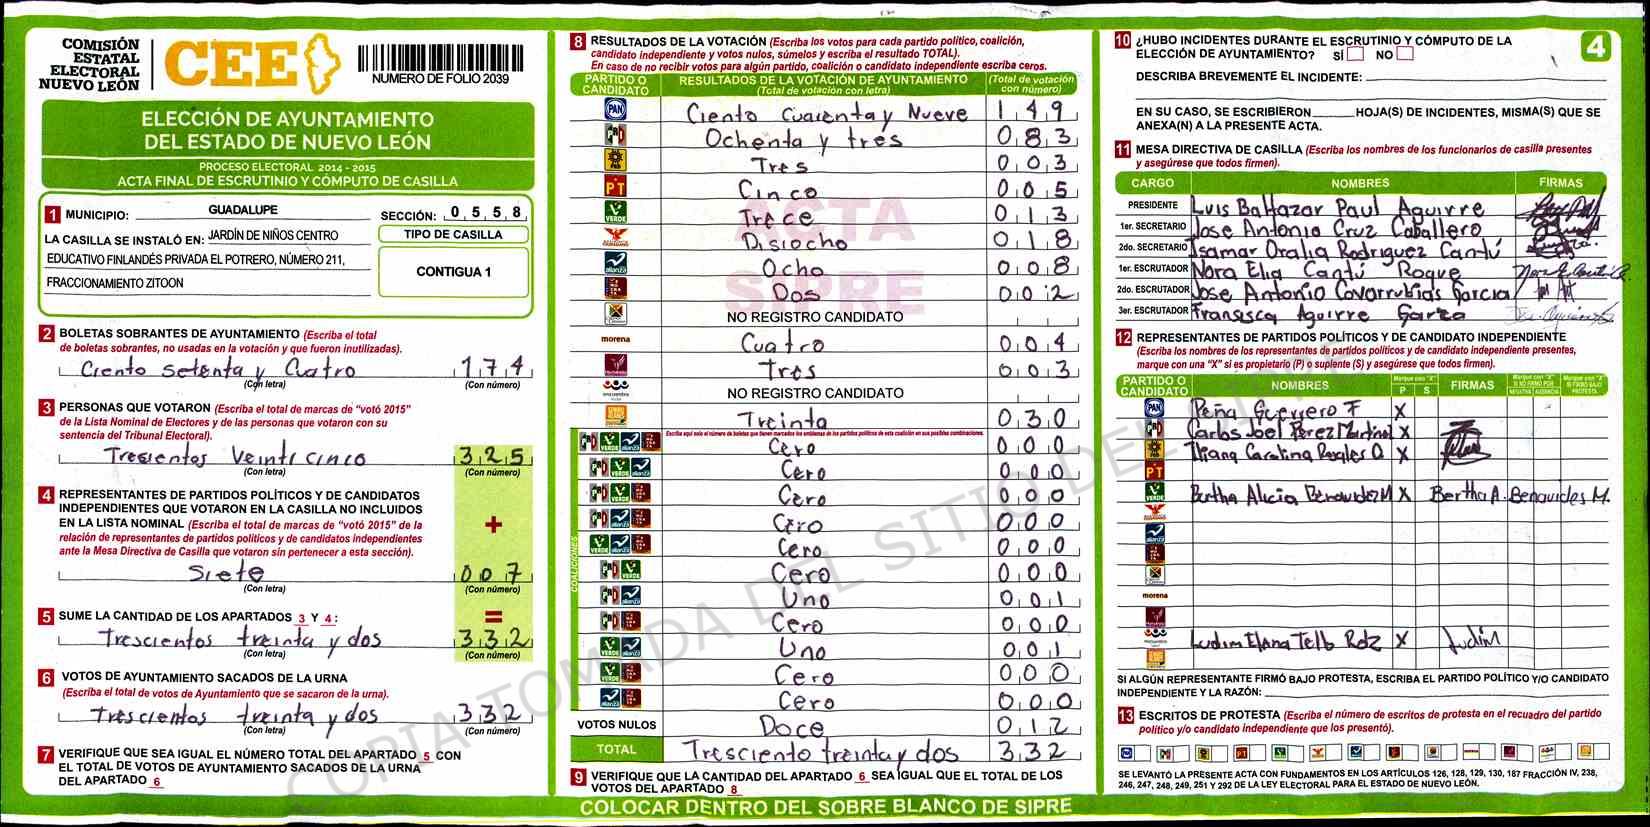 COMISIÓN
ESTATAL
ELECTORAL
NUEVO LEÓN
CEE
NUMERO DE FOLIO 2039
ELECCIÓN DE AYUNTAMIENTO
DEL ESTADO DE NUEVO LEÓN
PROCESO ELECTORAL 2014 - 2015
ACTA FINAL DE ESCRUTINIO Y CÓMPUTO DE CASILLA
1 MUNICIPIO: GUADALUPE SECCIÓN: 0 5 5 8
LA CASILLA SE INSTALÓ EN: JARDÍN DE NIÑOS CENTRO
EDUCATIVO FINLANDÉS PRIVADA EL POTRERO, NÚMERO 211,
FRACCIONAMIENTO ZITOON
TIPO DE CASILLA
CONTIGUA 1
2 BOLETAS SOBRANTES DE AYUNTAMIENTO (Escriba el total
de boletas sobrantes, no usadas en la votación y que fueron inutilizadas).
Ciento setenta y Cuatro 1 7 4
(Con letra) (Con número)
3 PERSONAS QUE VOTARON (Escriba el total de marcas de "votó 2015"
de la Lista Nominal de Electores y de las personas que votaron con su
sentencia del Tribunal Electoral).
Tresientos Veinticinco 3 2 5
(Con letra) (Con número)
4 REPRESENTANTES DE PARTIDOS POLÍTICOS Y DE CANDIDATOS
INDEPENDIENTES QUE VOTARON EN LA CASILLA NO INCLUIDOS
EN LA LISTA NOMINAL (Escriba el total de marcas de "votó 2015" de la
relación de representantes de partidos políticos y de candidatos independientes
ante la Mesa Directiva de Casilla que votaron sin pertenecer a esta sección).
+
Siete 0 0 7
(Con letra) (Con número)
5 SUME LA CANTIDAD DE LOS APARTADOS 3 Y 4: =
Trescientos treinta y dos 3 3 2
(Con letra) (Con número)
6 VOTOS DE AYUNTAMIENTO SACADOS DE LA URNA
(Escriba el total de votos de Ayuntamiento que se sacaron de la urna).
Trescientos treinta y dos 3 3 2
(Con letra) (Con número)
7 VERIFIQUE QUE SEA IGUAL EL NÚMERO TOTAL DEL APARTADO 5 CON
EL TOTAL DE VOTOS DE AYUNTAMIENTO SACADOS DE LA URNA
DEL APARTADO 6
8 RESULTADOS DE LA VOTACIÓN (Escriba los votos para cada partido político, coalición,
candidato independiente y votos nulos, súmelos y escriba el resultado TOTAL).
En caso de no recibir votos para algún partido, coalición o candidato independiente escriba ceros.
PARTIDO O CANDIDATO RESULTADOS DE LA VOTACIÓN DE AYUNTAMIENTO (Total de votación con letra) (Total de votación con número)
PAN Ciento Cuarenta y Nueve 1 4 9
PRD Ochenta y tres 0 8 3
Tres 0 0 3
PT Cinco 0 0 5
VERDE Trece 0 1 3
Disiocho 0 1 8
alianza Ocho 0 0 8
Dos 0 0 2
NO REGISTRO CANDIDATO
morena Cuatro 0 0 4
Tres 0 0 3
encuentro NO REGISTRO CANDIDATO
Treinta 0 3 0
Escriba aquí solo el número de boletas que tienen marcados los emblemas de los partidos políticos de esta coalición en sus posibles combinaciones.
COALICIONES
Cero 0 0 0
Cero 0 0 0
Cero 0 0 0
Cero 0 0 0
Cero 0 0 0
Cero 0 0 0
Uno 0 0 1
Cero 0 0 0
Uno 0 0 1
Cero 0 0 0
Cero 0 0 0
VOTOS NULOS Doce 0 1 2
TOTAL Tresciento treinta y dos 3 3 2
9 VERIFIQUE QUE LA CANTIDAD DEL APARTADO 6 SEA IGUAL QUE EL TOTAL DE LOS
VOTOS DEL APARTADO 8
ACTA
SIPRE
COPIA TOMADA DEL SITIO DEL SIPRE
COLOCAR DENTRO DEL SOBRE BLANCO DE SIPRE
10 ¿HUBO INCIDENTES DURANTE EL ESCRUTINIO Y CÓMPUTO DE LA
ELECCIÓN DE AYUNTAMIENTO? SÍ NO
4
DESCRIBA BREVEMENTE EL INCIDENTE:
EN SU CASO, SE ESCRIBIERON HOJA(S) DE INCIDENTES, MISMA(S) QUE SE
ANEXA(N) A LA PRESENTE ACTA.
11 MESA DIRECTIVA DE CASILLA (Escriba los nombres de los funcionarios de casilla presentes
y asegúrese que todos firmen).
CARGO NOMBRES FIRMAS
PRESIDENTE Luis Baltazar Paul Aguirre
1er. SECRETARIO Jose Antonio Cruz Caballero
2do. SECRETARIO Isamar Oralia Rodriguez Cantú
1er. ESCRUTADOR Nora Elia Cantú Roque
2do. ESCRUTADOR Jose Antonio Covarrubias Garcia
3er. ESCRUTADOR Francisca Aguirre Garza
12 REPRESENTANTES DE PARTIDOS POLÍTICOS Y DE CANDIDATO INDEPENDIENTE
(Escriba los nombres de los representantes de partidos políticos y de candidato independiente presentes,
marque con una "X" si es propietario (P) o suplente (S) y asegúrese que todos firmen).
PARTIDO O CANDIDATO NOMBRES Marque con "X" P S FIRMAS Marque con "X" SI NO FIRMÓ POR NEGATIVA AUSENCIA Marque con "X" SI FIRMÓ BAJO PROTESTA
PAN Peña Guerrero F X
Carlos Joel Perez Martinez X
Iliana Carolina X
PT
VERDE Bertha Alicia Benavides M X Bertha A. Benavides M.
morena
Ludim Elana Tello Rdz X Ludim
SI ALGÚN REPRESENTANTE FIRMÓ BAJO PROTESTA, ESCRIBA EL PARTIDO POLÍTICO Y/O CANDIDATO
INDEPENDIENTE Y LA RAZÓN:
13 ESCRITOS DE PROTESTA (Escriba el número de escritos de protesta en el recuadro del partido
político y/o candidato independiente que los presentó).
SE LEVANTÓ LA PRESENTE ACTA CON FUNDAMENTOS EN LOS ARTÍCULOS 126, 128, 129, 130, 187 FRACCIÓN IV, 238,
246, 247, 248, 249, 251 Y 292 DE LA LEY ELECTORAL PARA EL ESTADO DE NUEVO LEÓN.